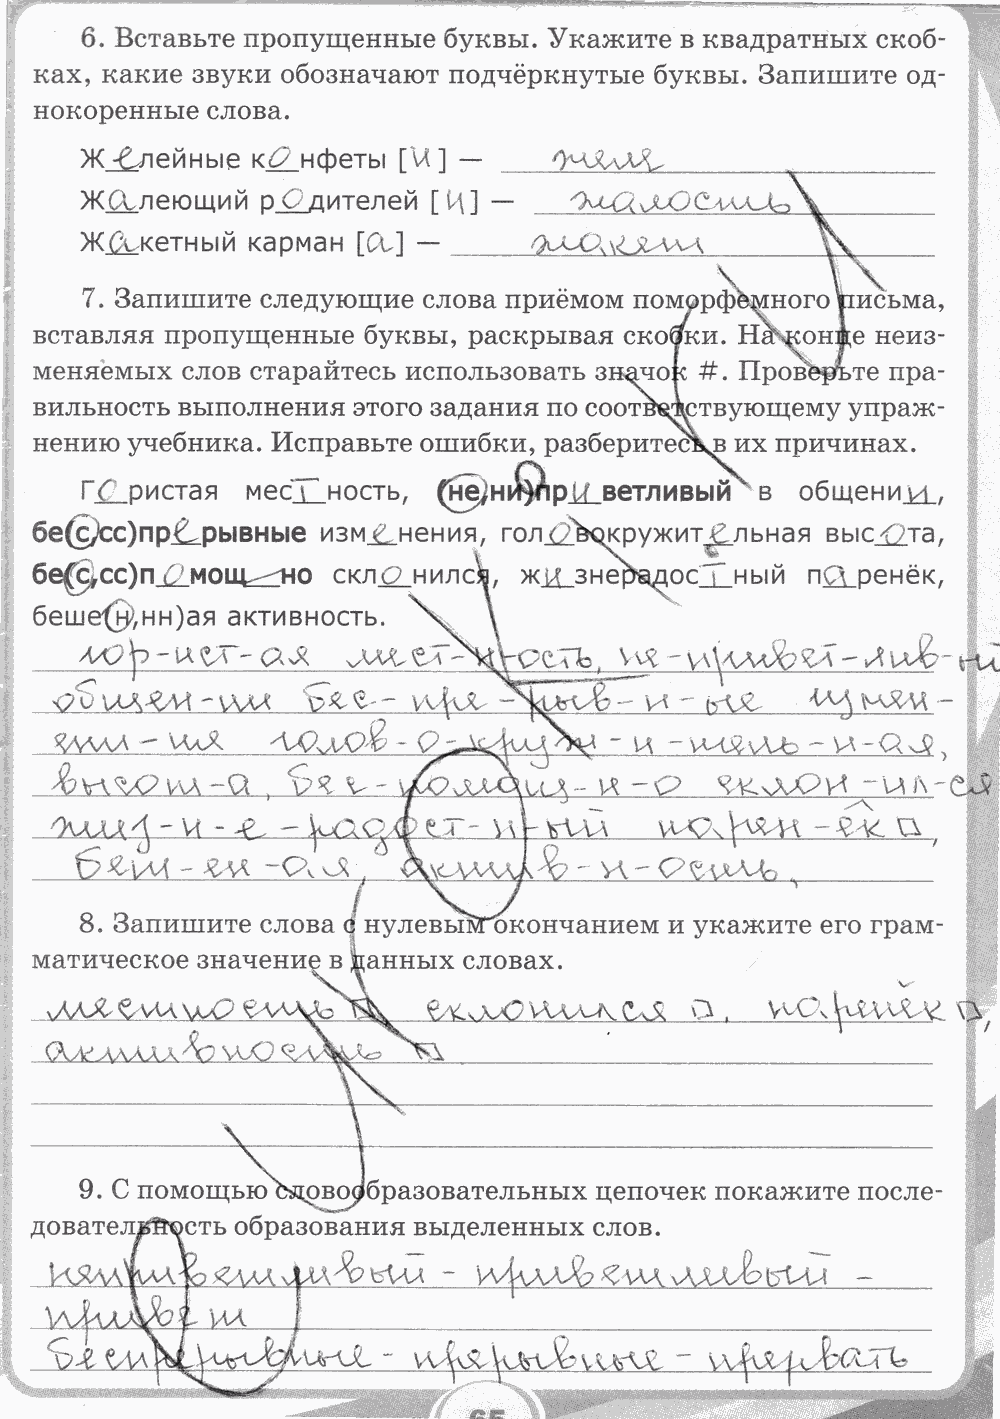 6. Вставьте пропущенные буквы. Укажите в квадратных скоб-
ках, какие звуки обозначают подчёркнутые буквы. Запишите од-
нокоренные слова.
Желейные конфеты [и] — желе
Жалеющий родителей [и] — жалость
Жакетный карман [а] — жакет
7. Запишите следующие слова приёмом поморфемного письма,
вставляя пропущенные буквы, раскрывая скобки. На конце неиз-
меняемых слов старайтесь использовать значок #. Проверьте пра-
вильность выполнения этого задания по соответствующему упраж-
нению учебника. Исправьте ошибки, разберитесь в их причинах.
Гористая местность, (не,ни)приветливый в общении,
бе(с,сс)прерывные изменения, головокружительная высота,
бе(с,сс)помощно склонился, жизнерадостный паренёк,
беше(н,нн)ая активность.
гор-ист-ая мест-н-ость, не-привет-лив-ый
общен-ии бес-пре-рыв-н-ые измен-
ени-ия голов-о-круж-и-тель-н-ая,
высот-а, бес-помощ-н-о склон-ил-ся
жиз-н-е-радост-н-ый парен-ёк,
беш-ен-ая активв-н-ость,
8. Запишите слова с нулевым окончанием и укажите его грам-
матическое значение в данных словах.
местность, склонился, паренёк,
активность
9. С помощью словообразовательных цепочек покажите после-
довательность образования выделенных слов.
неприветливый - приветливый -
привет
беспрерывные - прерывные - прервать
65
УРОКИ.ТУ